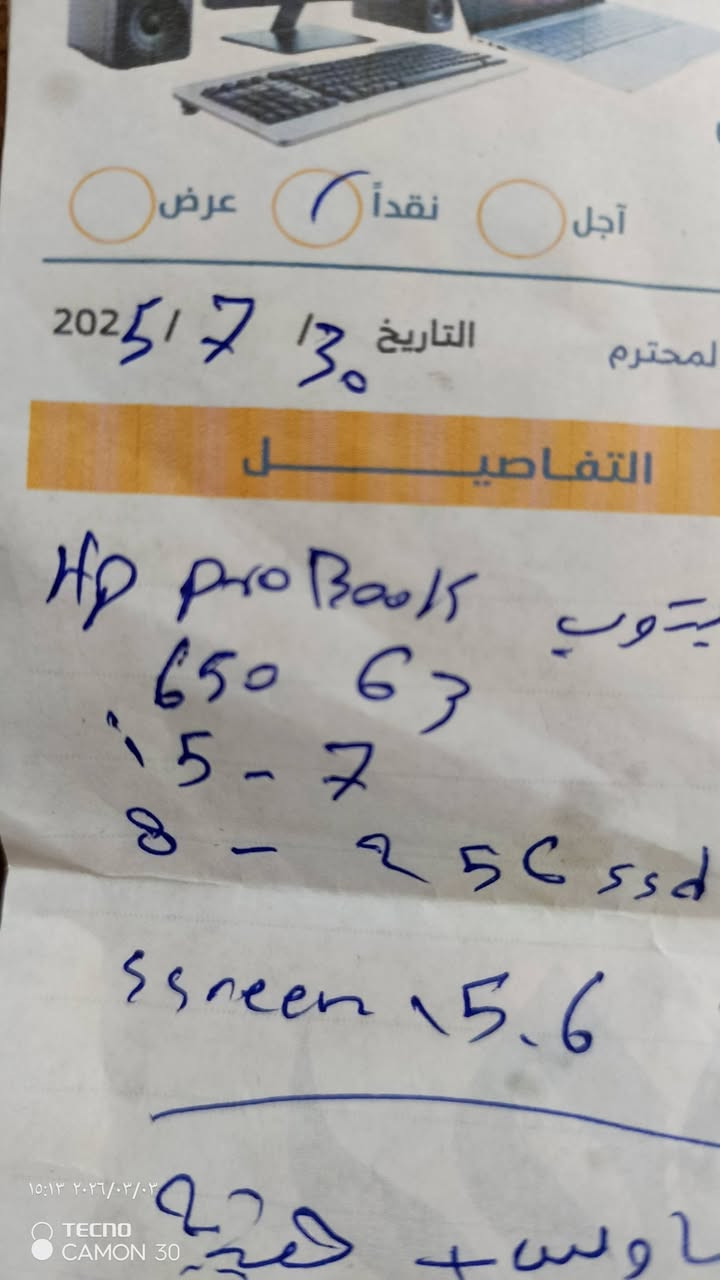 آجل نقداً عرض
لمحترم التاريخ 30/ 7 /2025
التفاصيـــــل
Hp proBook
650 G3
i5 - 7
8 - 256 ssd
ssreen 15.6
ماوس + شنطة
١٥:١٣ ٢٠٢٦/٠٣/٠٣
TECNO
CAMON 30